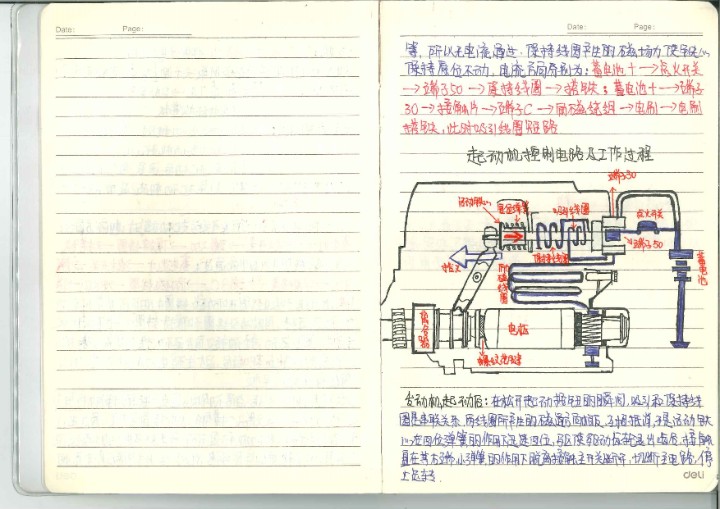 Date: Page:
Date: Page:
等, 所以无电流通过, 保持线圈产生的磁场力使铁心
保持原位不动, 电流方向分别为: 蓄电池+→点火开关
→端子50→保持线圈→搭铁; 蓄电池+→端子
30→接触片→端子C→励磁绕组→电刷→电刷
搭铁, 此时吸引线圈短路
起动机控制电路及工作过程
端子30
活动铁心
回位弹簧
吸引线圈
点火开关
端子50
保持线圈
拨叉
励磁线圈
蓄电池
离合器
电枢
螺纹花键
发动机起动后: 在松开起动按钮的瞬间, 吸引和保持线
圈是串联关系, 两线圈所产生的磁通方向相反, 互相抵消, 于是活动铁
心在回位弹簧的作用下迅速回位, 驱使驱动齿轮退出啮合, 接触
盘在其右端小弹簧的作用下脱离接触主开关断开, 切断了主电路, 停
止运转.
deli
deli